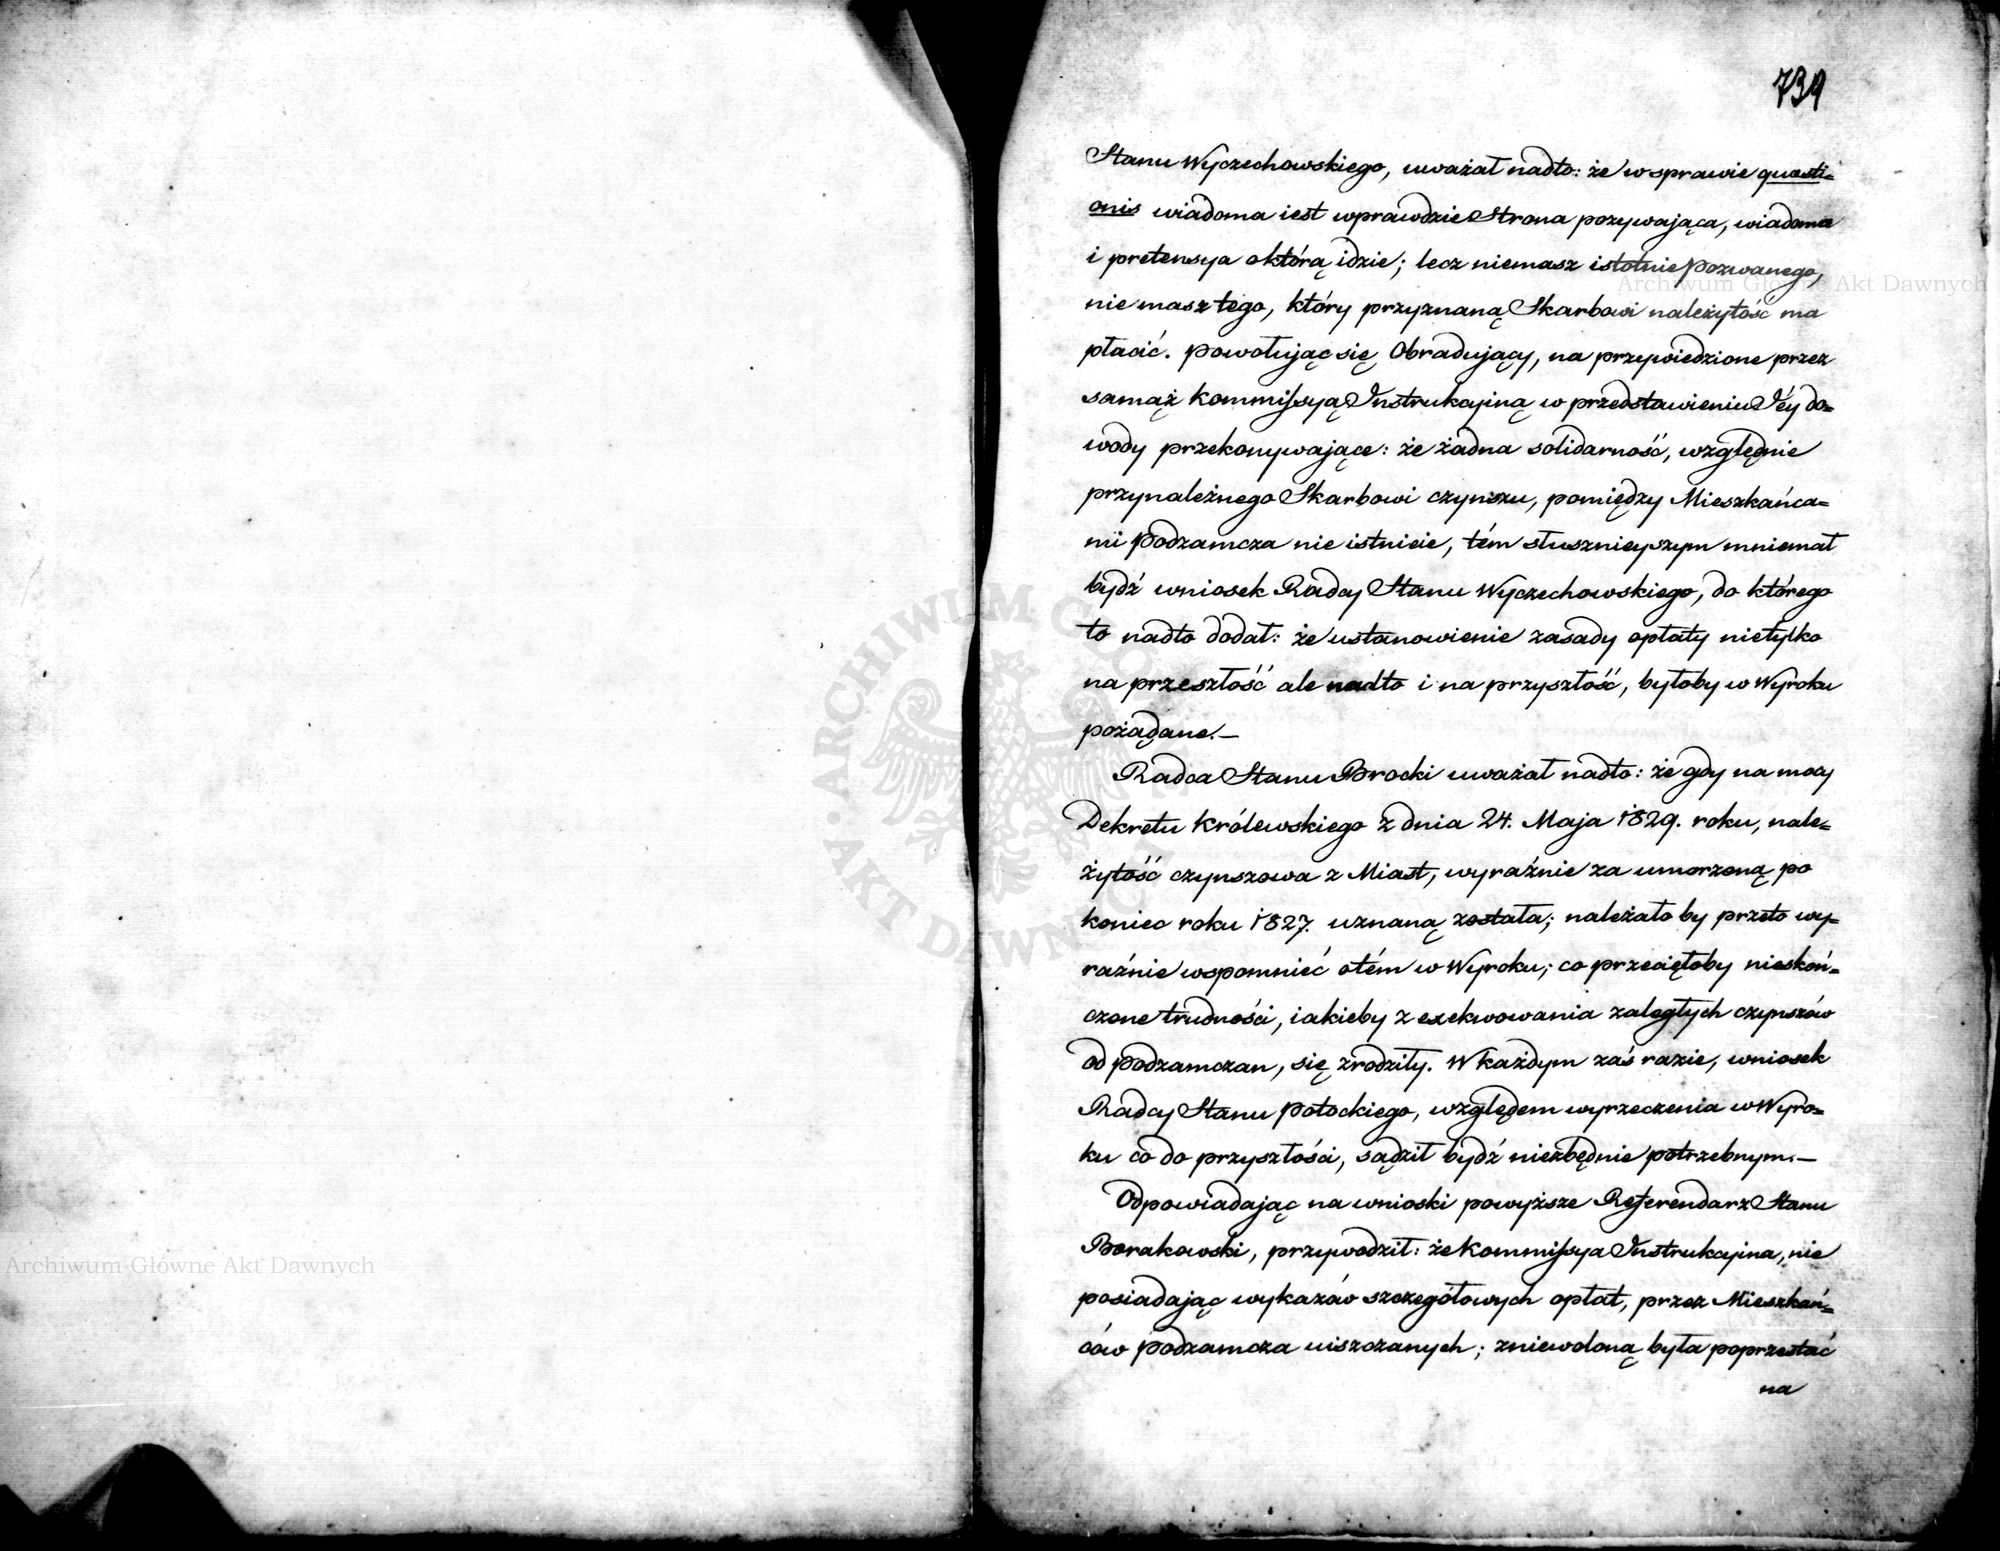 739
Stanu Wyczechowskiego, uważał nadto: że w sprawie questi=
onis wiadoma iest wprawdzie Strona pozywaiąca, wiadoma
i pretensya o którą idzie; lecz niemasz istotnie Pozwanego,
nie masz tego, który przyznaną Skarbowi należytość ma
płacić. Powołuiąc się Obraduiący, na przywiedzione przez
samąż Kommissyą Instrukcyiną w przedstawieniu Iéy do=
wody przekonywaiące: że żadna solidarność, względnie
przynależnego Skarbowi czynszu, pomiędzy Mieszkańca=
mi Podzamcza nie istnieie, tém słusznieyszym mniemał
bydź wniosek Radcy Stanu Wyczechowskiego, do którego
to nadto dodał: że ustanowienie zasady opłaty nietylko
na przeszłość ale nadto i na przyszłość, byłoby w Wyroku
pożądane.—
Radca Stanu Brocki uważał nadto: że gdy na mocy
Dekretu Królewskiego z dnia 24. Maja 1829. roku, nale=
żytość czynszowa z Miast, wyraźnie za umorzoną po
koniec roku 1827. uznaną została; należało by przeto wy=
raźnie wspomnieć o tém w Wyroku; co przecięłoby nieskoń=
czone trudności, iakieby z exekwowania zaległych czynszów
od Podzamczan, się zrodziły. W każdym zaś razie, wniosek
Radcy Stanu Potockiego, względem wyrzeczenia w Wyro=
ku co do przyszłości, sądził bydź niezbędnie potrzebnym.—
Odpowiadaiąc na wnioski powyższe Referendarz Stanu
Borakowski, przywodził: że Kommissya Instrukcyina, nie
posiadaiąc wykazów szczegółowych opłat, przez Mieszkań=
ców Podzamcza uiszczanych; zniewoloną była poprzestać
na
Archiwum Główne Akt Dawnych
Archiwum Główne Akt Dawnych
ARCHIWUM GŁÓWNE AKT DAWNYCH